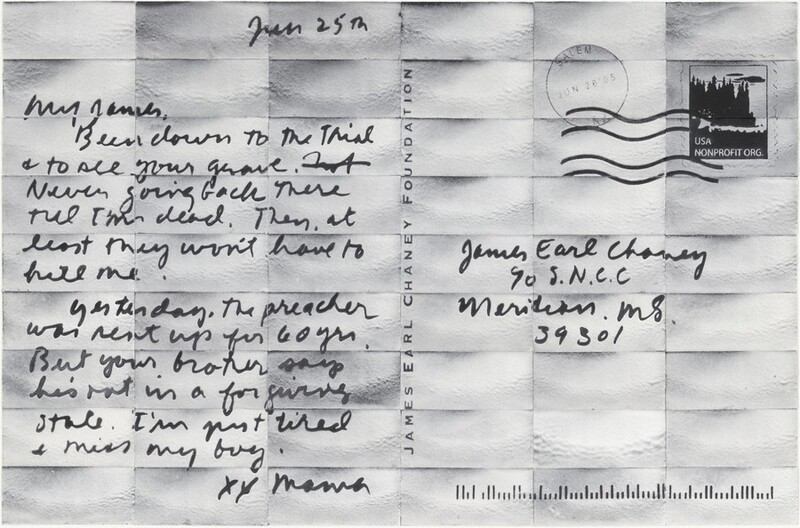 Jun 25th
My James,
Been down to the Trial
& to see your grave. Not
Never going back there
till I'm dead. Then, at
least they won't have to
kill me.
Yesterday, the preacher
was sent up for 60 yrs.
But your brother says
he's not in a forgiving
state. I'm just tired
& miss my boy.
XX Mama
JAMES EARL CHANEY FOUNDATION
SALEM
JUN 26 '05
USA
NONPROFIT ORG.
James Earl Chaney
S.N.C.C
Meridian, MS.
39301